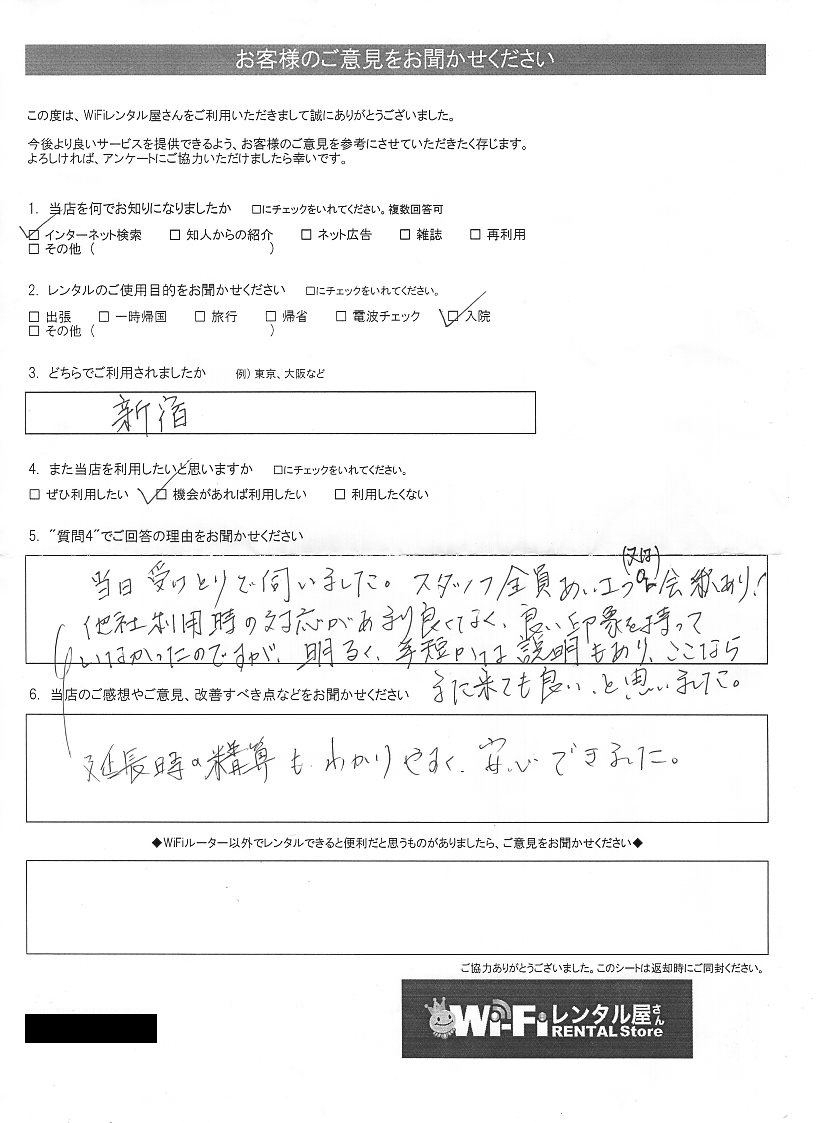 お客様のご意見をお聞かせください
この度は、WiFiレンタル屋さんをご利用いただきまして誠にありがとうございました。
今後より良いサービスを提供できるよう、お客様のご意見を参考にさせていただきたく存じます。
よろしければ、アンケートにご協力いただけましたら幸いです。
1. 当店を何でお知りになりましたか □にチェックをいれてください。複数回答可
□ インターネット検索 □ 知人からの紹介 □ ネット広告 □ 雑誌 □ 再利用
□ その他 ( )
2. レンタルのご使用目的をお聞かせください □にチェックをいれてください。
□ 出張 □ 一時帰国 □ 旅行 □ 帰省 □ 電波チェック □ 入院
□ その他 ( )
3. どちらでご利用されましたか 例) 東京、大阪など
新宿
4. また当店を利用したいと思いますか □にチェックをいれてください。
□ ぜひ利用したい □ 機会があれば利用したい □ 利用したくない
5. "質問4"でご回答の理由をお聞かせください
(又は)
当日受けとりで伺いました。スタッフ全員あいさつ 会釈あり!
他社利用時の対応があまり良くなく、良い印象を持って
いなかったのですが、明るく、手短かには説明もあり、ここなら
また来ても良い、と思いました。
6. 当店のご感想やご意見、改善すべき点などをお聞かせください
延長時の精算も、わかりやすく、安心できました。
◆WiFiルーター以外でレンタルできると便利だと思うものがありましたら、ご意見をお聞かせください◆
ご協力ありがとうございました。このシートは返却時にご同封ください。
Wi-Fiレンタル屋さん
RENTAL Store